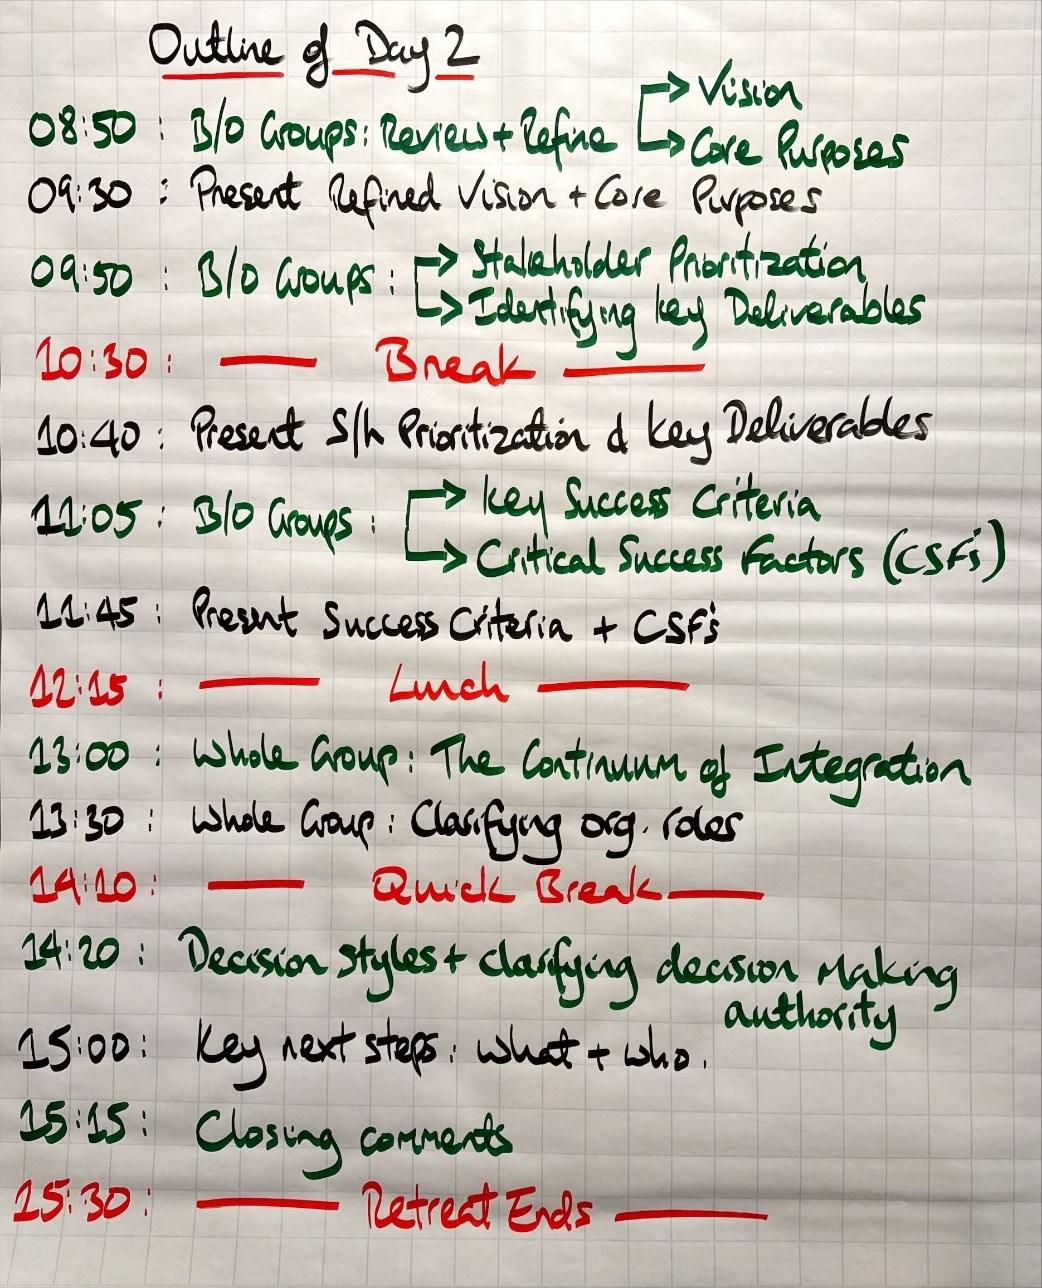 Outline of Day 2
08:50 : B/O Groups: Review + Refine → Vision
→ Core Purposes
09:30 : Present Refined Vision + Core Purposes
09:50 : B/O Groups : → Stakeholder Prioritization
→ Identifying key Deliverables
10:30 : — Break —
10:40 : Present S/h Prioritization & key Deliverables
11:05 : B/O Groups : → key Success Criteria
→ Critical Success Factors (CSF's)
11:45 : Present Success Criteria + CSF's
12:15 : — Lunch —
13:00 : Whole Group: The Continuum of Integration
13:30 : Whole Group: Clarifying org. roles
14:10 : — Quick Break —
14:20 : Decision styles + clarifying decision making
authority
15:00 : Key next steps: what + who.
15:15 : Closing comments
15:30 : — Retreat Ends —